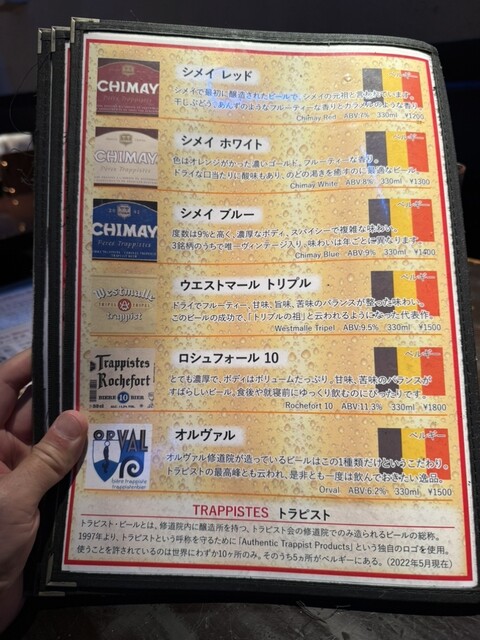 CHIMAY
Pères Trappistes
シメイ レッド
ベルギー
シメイで最初に醸造されたビールで、シメイの元祖と言われています。
干しぶどう、あんずのようなフルーティーな香りとカラメルのような香り。
Chimay Red ABV.7% 330ml ¥1200
CHIMAY
Pères Trappistes
シメイ ホワイト
ベルギー
色はオレンジがかった濃いゴールド。フルーティーな香り。
ドライな口当たりに酸味もあり、のどの渇きを癒すのに最適なビール。
Chimay White ABV.8% 330ml ¥1300
CHIMAY
Pères Trappistes
シメイ ブルー
ベルギー
度数は9%と高く、濃厚なボディ、スパイシーで複雑な味わい。
3銘柄のうちで唯一ヴィンテージ入り。味わいは年ごとに異なります。
Chimay Blue ABV.9% 330ml ¥1400
Westmalle
trappist
ウエストマール トリプル
ベルギー
ドライでフルーティー。甘味、旨味、苦味のバランスが整った味わい。
このビールの成功で、「トリプルの祖」と云われるようになった代表作。
Westmalle Tripel ABV.9.5% 330ml ¥1500
Trappistes
Rochefort
BIÈRE 10 BIER
ロシュフォール 10
ベルギー
とても濃厚で、ボディはボリュームたっぷり。甘味、苦味のバランスが
すばらしいビール。食後や就寝前にゆっくり飲むのにぴったりです。
Rochefort 10 ABV.11.3% 330ml ¥1800
ORVAL
bière trappiste
trappistenbier
オルヴァル
ベルギー
オルヴァル修道院が造っているビールはこの1種類だけというこだわり。
トラピストの最高峰とも云われ、是非とも一度は飲んでおきたい逸品。
Orval ABV.6.2% 330ml ¥1500
TRAPPISTES トラピスト
トラピスト・ビールとは、修道院内に醸造所を持つ、トラピスト会の修道院でのみ造られるビールの総称。
1997年より、トラピストという呼称を守るために「Authentic Trappist Products」という独自のロゴを使用。
使うことを許されているのは世界にわずか10ヶ所のみ。そのうち5ヵ所がベルギーにある。(2022年5月現在)